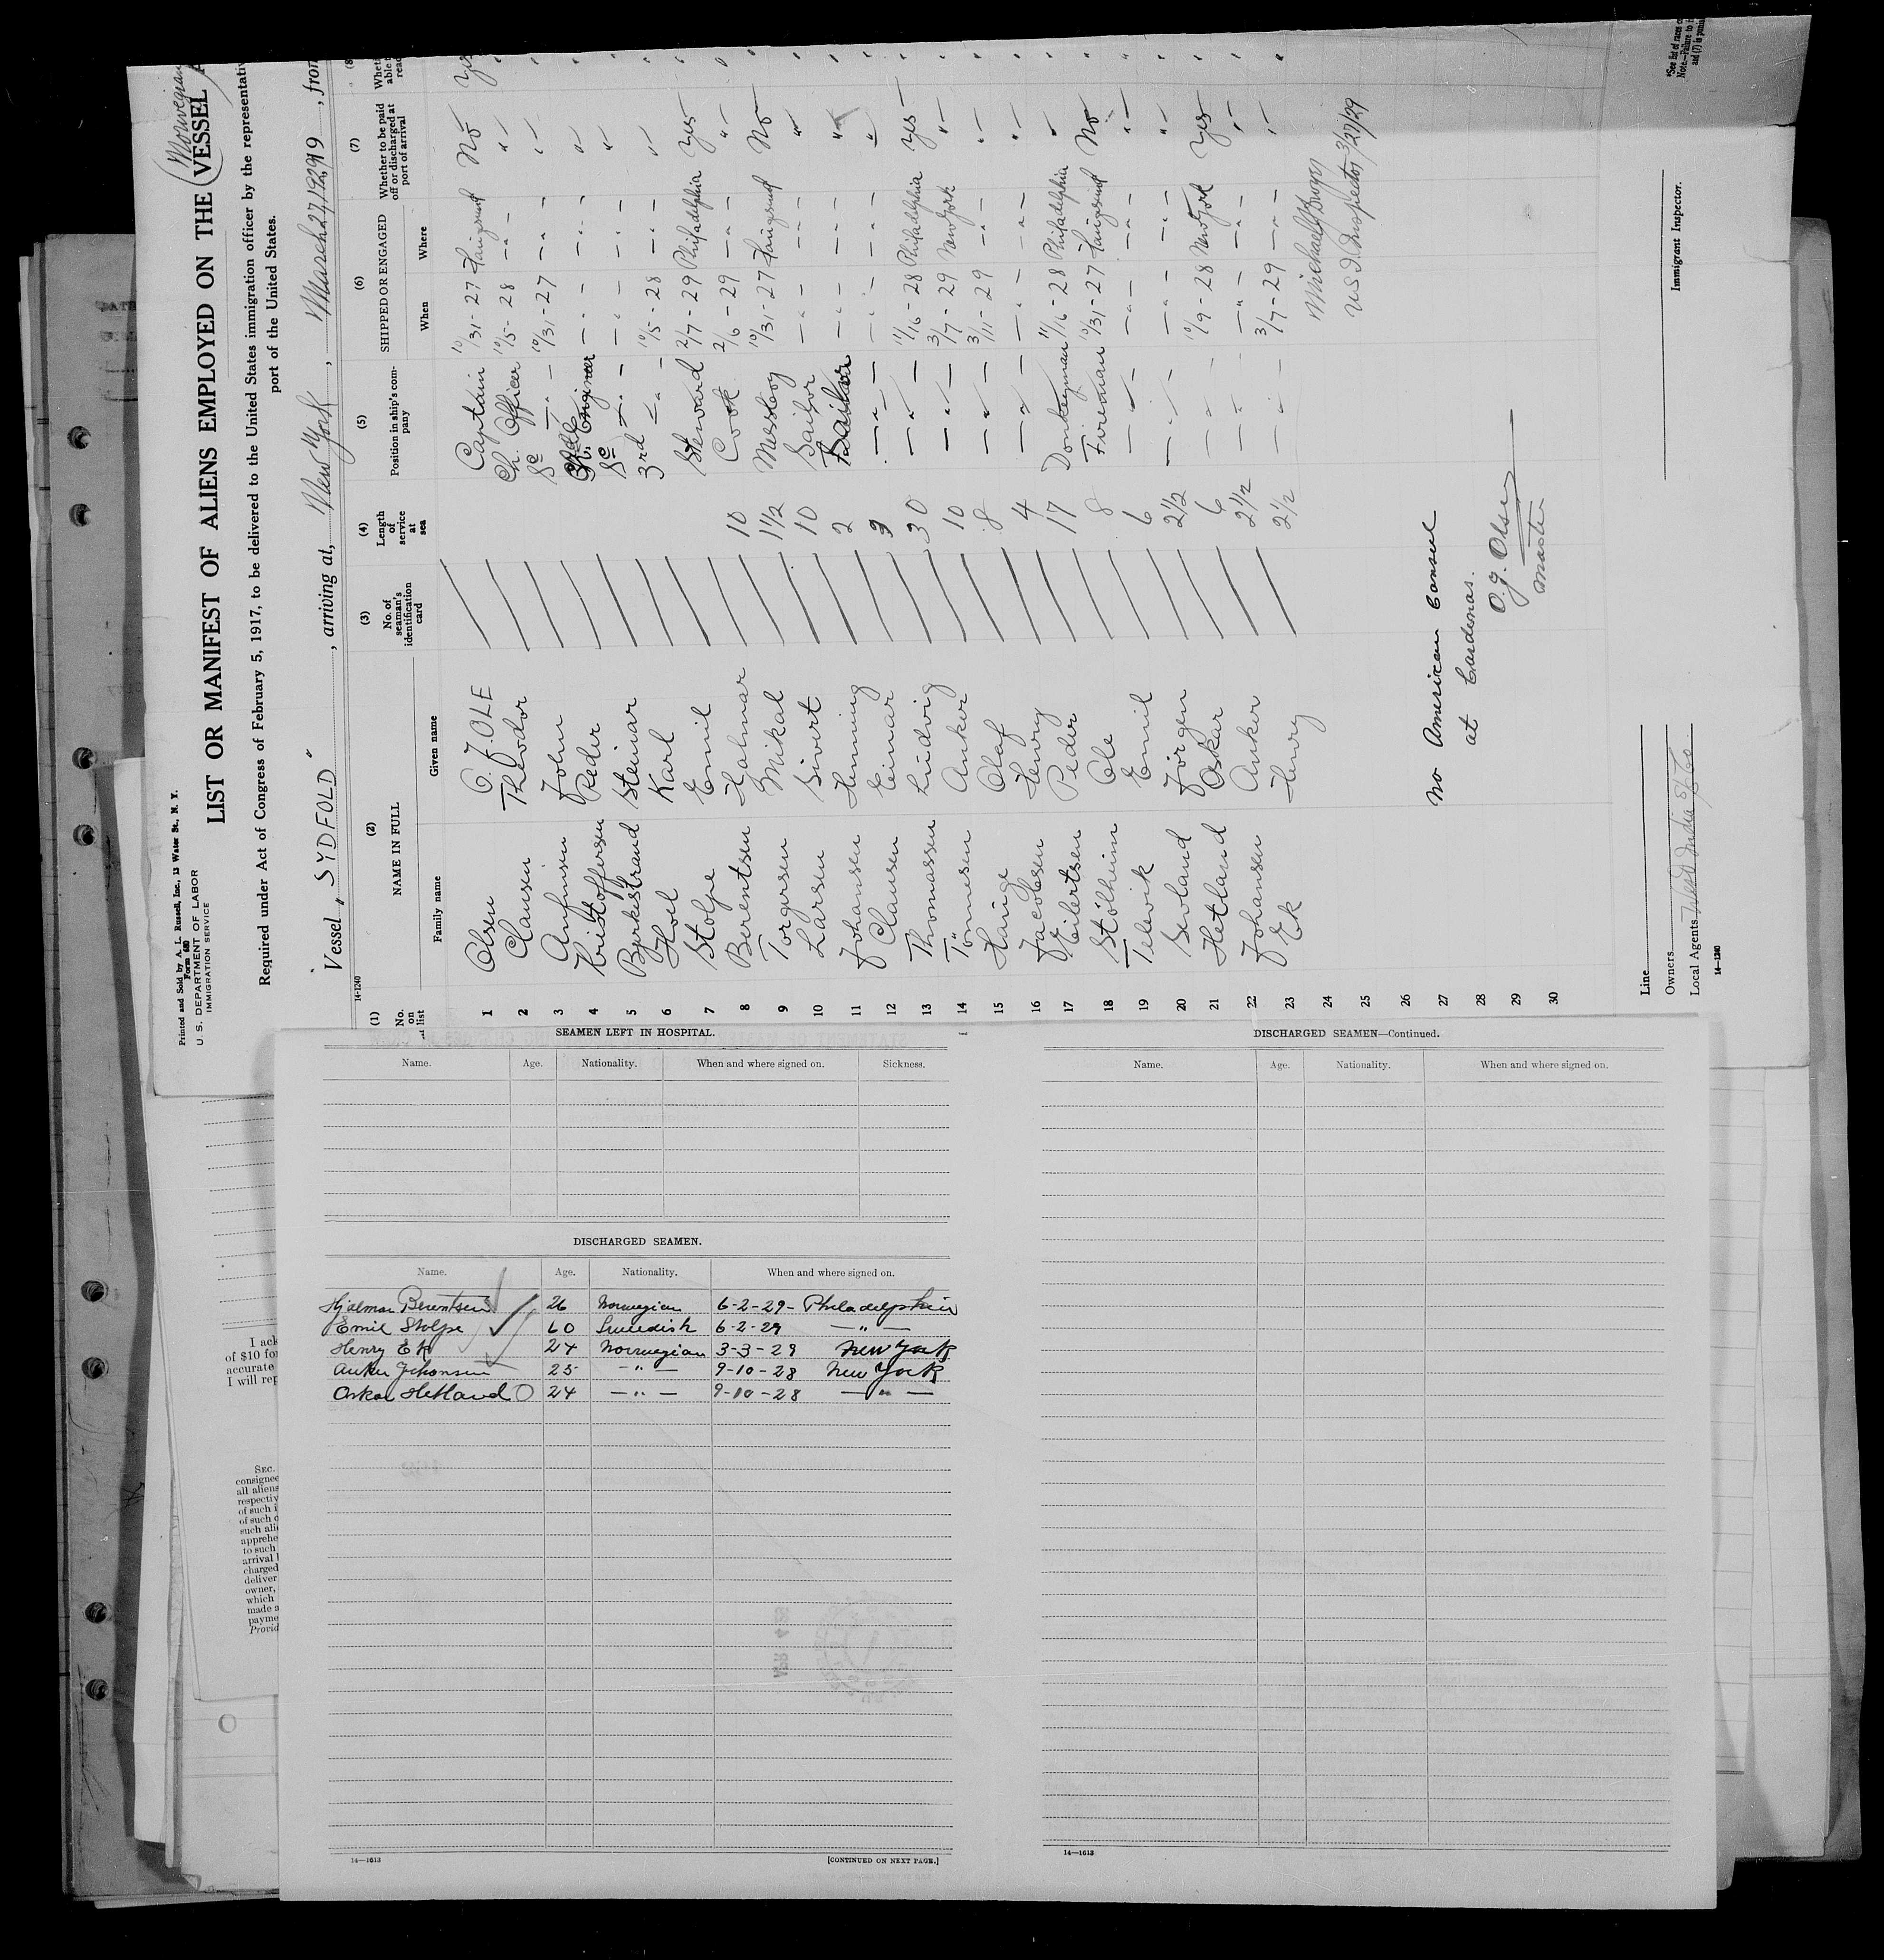 Printed and Sold by A. L. Russell, Inc., 13 Water St., N. Y.
Form 680
U. S. DEPARTMENT OF LABOR
IMMIGRATION SERVICE
Norwegian
LIST OR MANIFEST OF ALIENS EMPLOYED ON THE VESSEL
Required under Act of Congress of February 5, 1917, to be delivered to the United States immigration officer by the representativ
port of the United States.
Vessel "SYDFOLD", arriving at, New York, March 27, 1929 19, from
14-1240
(1) (2) (3) (4) (5) (6) (7) (8
No. on list
NAME IN FULL
Family name Given name
No. of seaman's identification card
Length of service at sea
Position in ship's company
SHIPPED OR ENGAGED
When Where
Whether to be paid off or discharged at port of arrival
1 Olsen O. J. OLE Captain 10/31-27 Haugesund No Yes
2 Clausen Theodor Ch. Officer 10/5-28 -"- "
3 John Sc -"- 10/31-27 -"- "
4 Kristoffersen Peder Engineer -"- -"- "
5 Bjerkestrand Steinar Sc -"- -"- -"- "
6 Hoel Karl 3rd -"- 10/5-28 -"- "
7 Stolpe Emil Steward 2/7-29 Philadelphia Yes
8 Berentsen Halmar 10 Cook 2/6-29 -"- "
9 Torgersen Mikal 1 1/2 Messboy 10/31-27 Haugesund No
10 Larsen Sivert 10 Sailor -"- -"- "
11 Johansen Henning 2 Sailor -"- -"- "
12 Clausen Einar -"- -"- -"- "
13 Thomassen Ludvig 30 -"- 11/16-28 Philadelphia Yes
14 Tönnesen Anker 10 -"- 3/7-29 New York "
15 Hauge Olaf 8 -"- 3/11-29 -"- "
16 Jacobsen Henry 4 -"- -"- -"- "
17 Eilertsen Peder 17 Donkeyman 11/16-28 Philadelphia "
18 Stölheim Ole 8 Fireman 10/31-27 Haugesund No
19 Televik Emil 6 -"- -"- -"- "
20 Sevland Jörgen 2 1/2 -"- -"- -"- "
21 Hetland Oskar 6 -"- 10/9-28 New York Yes
22 Johansen Anker 2 1/2 -"- -"- -"- "
23 Ek Henry 2 1/2 -"- 3/7-29 -"- "
24
25
26
27
28
29
30
U S I Inspector 3/27/29
No American Consul
at Cardenas.
O. J. Olsen
Master
Immigrant Inspector.
Line
Owners
Local Agents West India
14-1240
*See list of races
Note.—Failure to
and (7) is
SEAMEN LEFT IN HOSPITAL.
Name. Age. Nationality. When and where signed on. Sickness.
DISCHARGED SEAMEN.
Name. Age. Nationality. When and where signed on.
Hjalmar Berentsen 26 Norwegian 6-2-29- Philadelphia
Emil Stolpe 60 Swedish 6-2-29 -"-
Henry Ek 24 Norwegian 3-3-29 New York
Anker Johansen 25 -"- 9-10-28 New York
Oskar Hetland 24 -"- 9-10-28 -"-
14—1613
[CONTINUED ON NEXT PAGE.]
DISCHARGED SEAMEN—Continued.
Name. Age. Nationality. When and where signed on.
14—1613
I ack
of $10 for
accurate
I will rep
SEC.
consignee
all aliens
respectiv
of such i
of such c
such alie
apprehe
to such
arrival l
charged
deliver
owner,
which
made a
payme
Provid